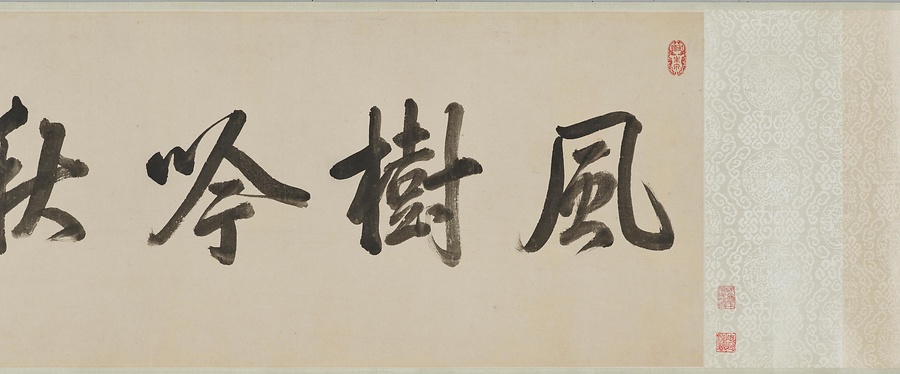 風樹吟秋